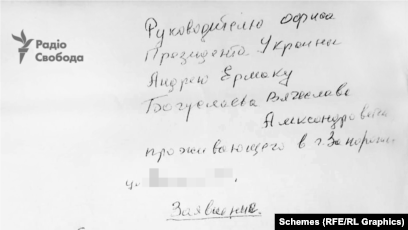 Радіо
Свобода
Руководителю офиса
Президента Украины
Андрею Ермаку
Богуслаева Вячеслава
Александровича
проживающего в г. Запорожье
ул.
Заявление.
Schemes (RFE/RL Graphics)